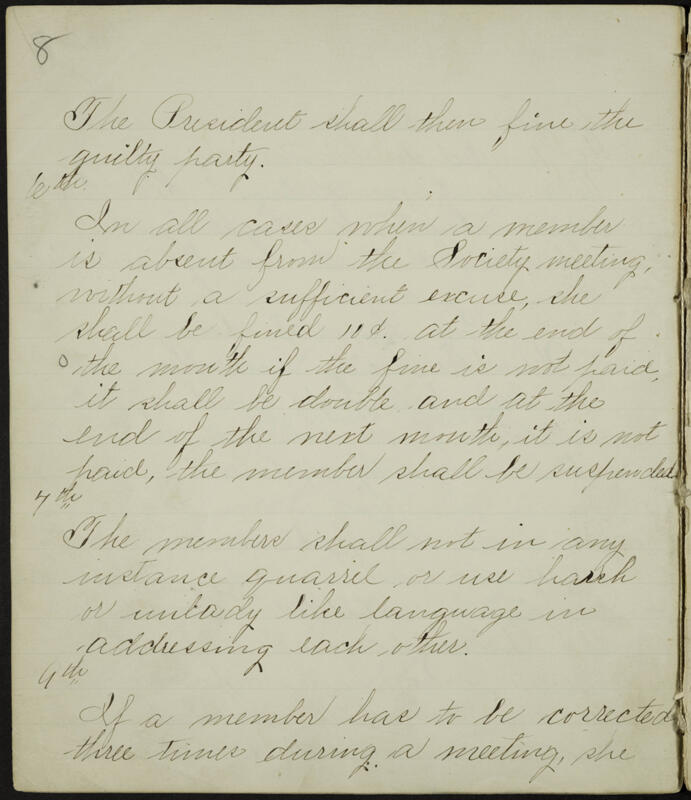 8
The President shall then fine the
guilty party.
6th.
In all cases when a member
is absent from the Society meeting,
without a sufficient excuse, she
shall be fined 10¢. at the end of
the month if the fine is not paid,
it shall be double and at the
end of the next month, it is not
paid, the member shall be suspended
7th
The members shall not in any
instance quarrel or use harsh
or unlady like language in
addressing each other.
9th
If a member has to be corrected
three times during a meeting, she